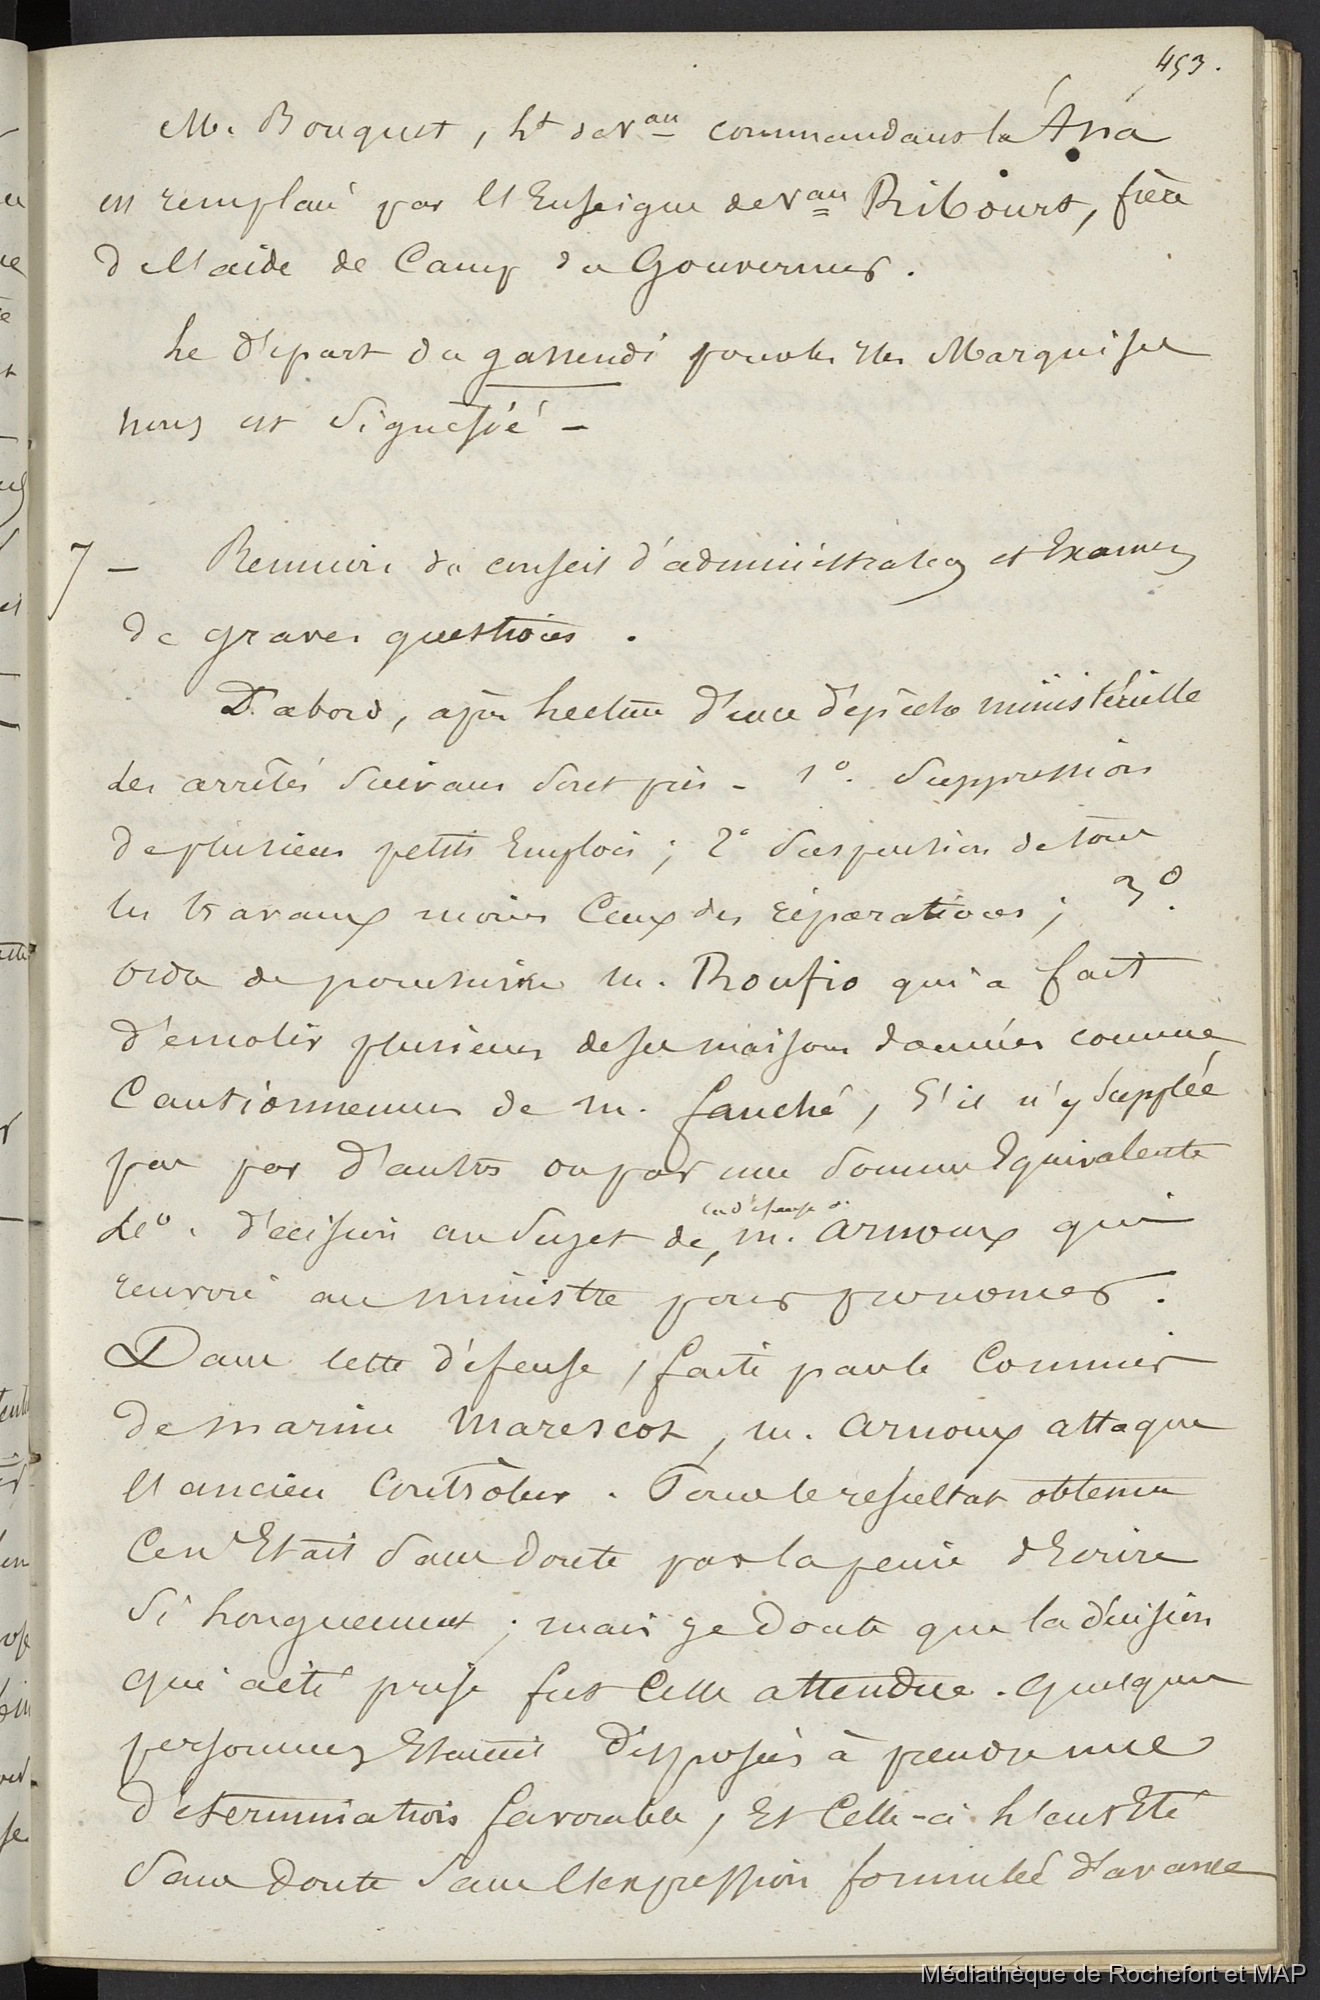 453.
M. Bouquet, Lt de Vau commandant la Ana
est remplacé par l'Enseigne de Vau Ribourt, frère
de l'aide de Camp du Gouverneur.
Le départ du gassendi pour les îles Marquises
nous est signifié –
7 – Reunion du conseil d'administration et Examen
de graves questions.
D'abord, après lecture d'une dépêche ministérielle
des arrêtés suivans sont pris – 1°. Suppression
de plusieurs petits Emplois ; 2° Suspension de tous
les travaux moins Ceux des réparations ; 3°.
ordre de poursuivre m. Roufio qui a fait
démolir plusieurs de ses maisons données comme
Cautionnemens de m. fauché, S'il n'y Supplée
pas par d'autres ou par une Somme Equivalente
décision au Sujet de la défense de m. arnoux qui
renvoi au ministre pour prononcer.
Dans cette défense, faite par le Commis
de marine Marescot, m. arnoux attaque
l'ancien Contrôleur. Pour le resultat obtenu
Ce n'Etait Sans doute pas la peine d'Ecrire
Si longuement ; mais je doute que la décision
qui a été prise fut Celle attendue. quelques
personnes Etaient disposées à prendre une
détermination favorable, Et Celle-ci l'eut Eté
Sans doute Sans l'expression formulée d'avance
Médiathèque de Rochefort et MAP